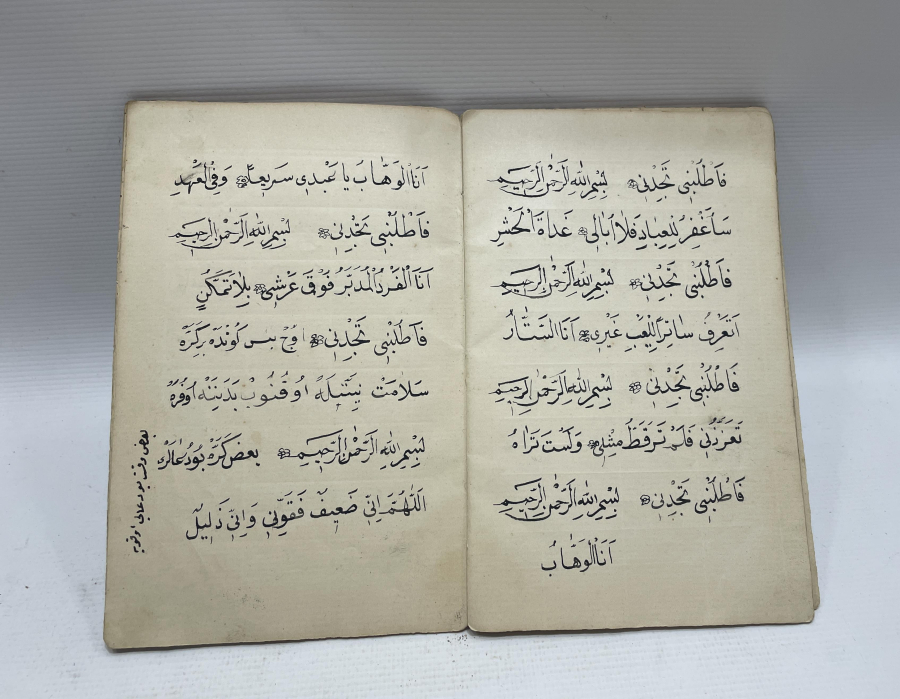 فَاطْلُبْنِي تَجِدْنِي بِسْمِ اللهِ الرَّحْمٰنِ الرَّحِيمِ
سَأَغْفِرُ لِلْعِبَادِ فَلَا اُبَالِي غَدَاةَ الْحَشْرِ
فَاطْلُبْنِي تَجِدْنِي بِسْمِ اللهِ الرَّحْمٰنِ الرَّحِيمِ
اَتَعْرِفُ سَاتِرًا لِلْعَيْبِ غَيْرِي اَنَا السَّتَّارُ
فَاطْلُبْنِي تَجِدْنِي بِسْمِ اللهِ الرَّحْمٰنِ الرَّحِيمِ
فَلَمْ تَرَ قَطُّ مِثْلِي وَلَسْتَ تَرَاهُ
فَاطْلُبْنِي تَجِدْنِي بِسْمِ اللهِ الرَّحْمٰنِ الرَّحِيمِ
اَنَا الْوَهَّابُ
اَنَا الْوَهَّابُ يَا عَبْدِي سَرِيعًا وَفِي الْعَهْدِ
فَاطْلُبْنِي تَجِدْنِي بِسْمِ اللهِ الرَّحْمٰنِ الرَّحِيمِ
اَنَا الْفَرْدُ الْمُدَبِّرُ فَوْقَ عَرْشِي بِلَا تَمَكُّنٍ
فَاطْلُبْنِي تَجِدْنِي اوج بس كونده بركره
سلامت نيتيله اوقنوب بدنينه اوفره
بِسْمِ اللهِ الرَّحْمٰنِ الرَّحِيمِ بعض كره بو دعالر
اَللّٰهُمَّ اِنِّي ضَعِيفٌ فَقَوِّنِي وَاِنِّي ذَلِيلٌ
بعض وقت بو دعايى اوقويه